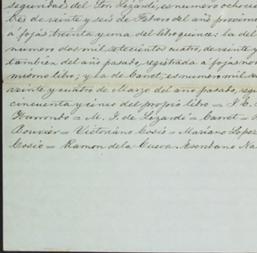 segunda del Sor. Lizardi, es numero ochocie
tres de veinte y seis de Febrero del año procsimo
a fojas treinta y una del libro quince: la del
numero dos mil setecientos cuatro, de veinte y
tambien del año pasado, registrada a fojas nov
mismo libro; y la de Canet, es numero mil se
veinte y cuatro de Marzo del año pasado, reg
cincuenta y cinco del propio libro = J. C.
= M. J. de Lizardi = Canet =
= Victoriano Cosio = Mariano Lopez
Cosio = Ramon de la Cueva Escribano Na